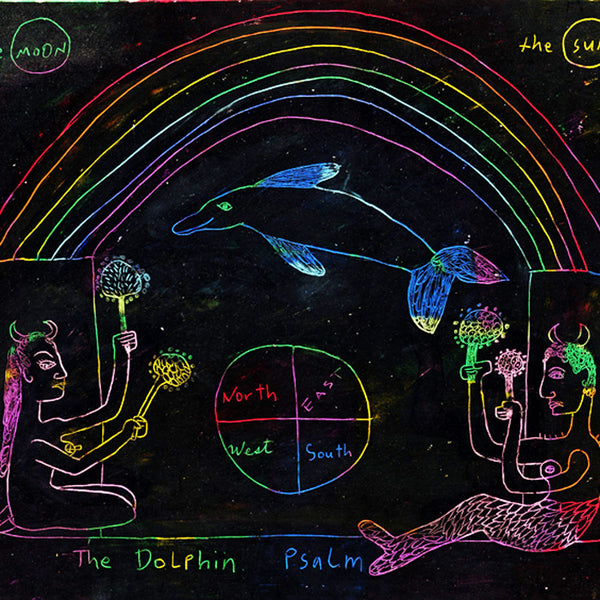 MOON
the sun
North EAST
West South
The Dolphin Psalm